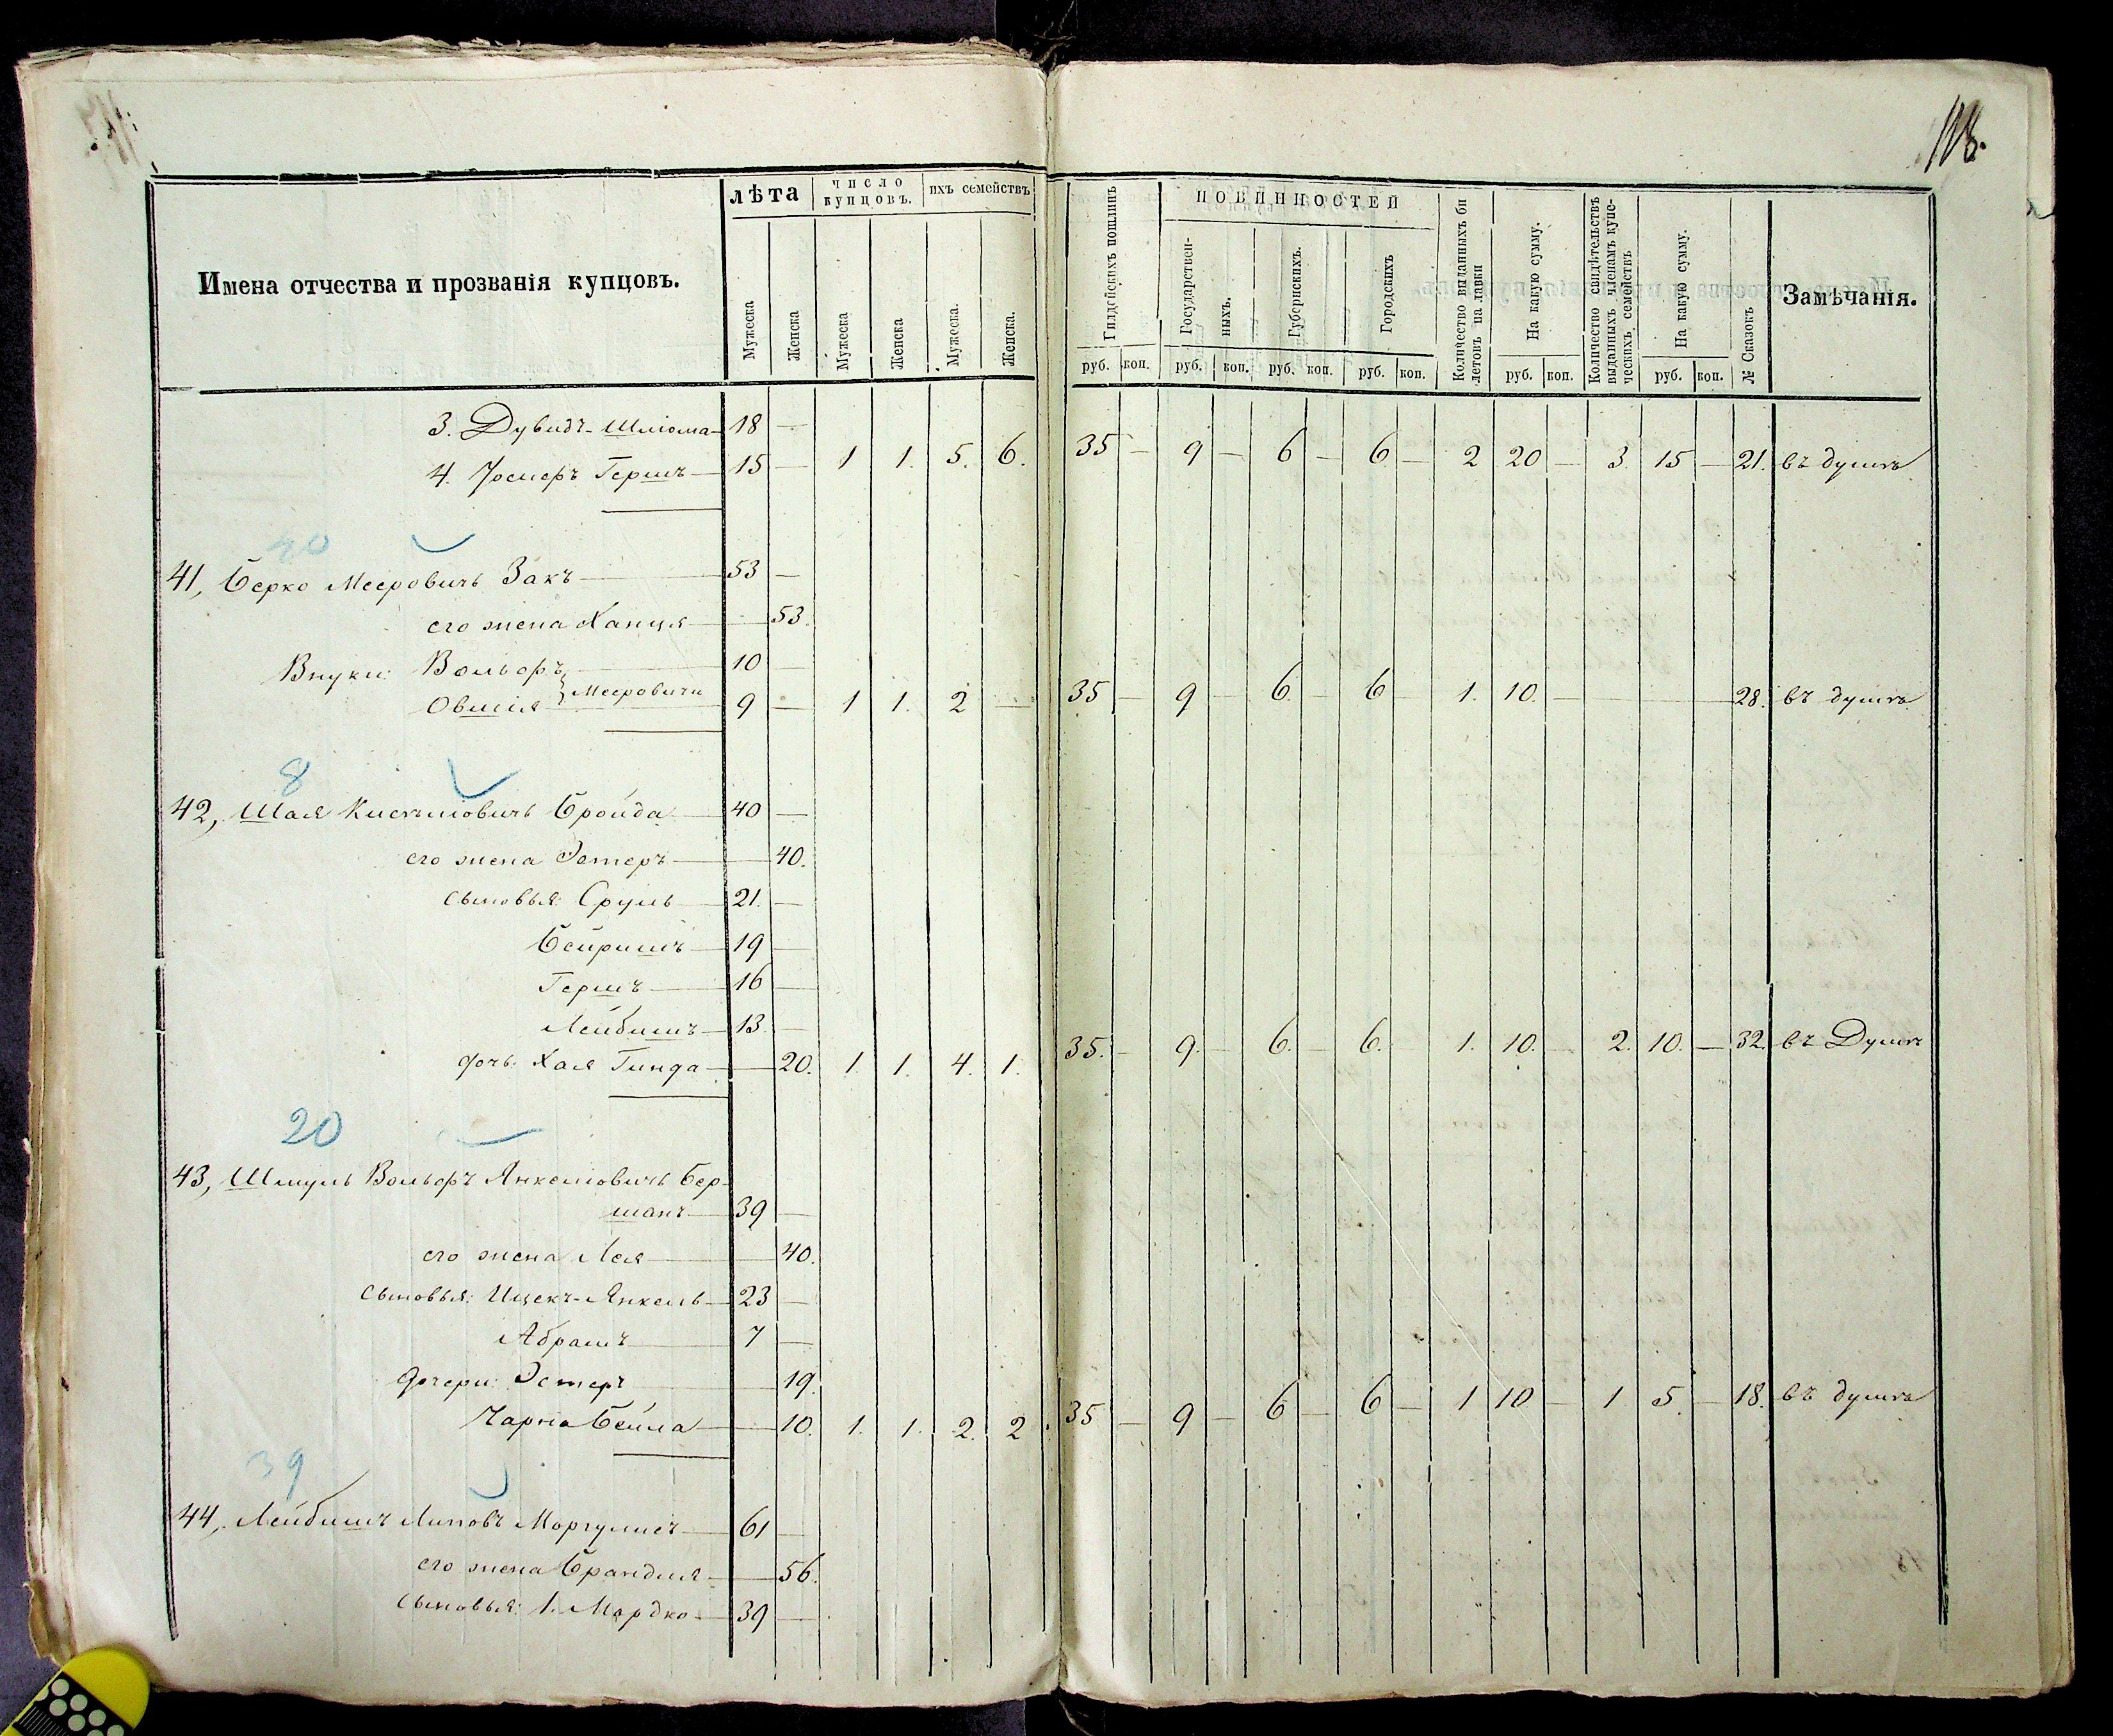 118.
Имена отчества и прозванія купцовъ.
лѣта
число купцовъ.
ихъ семействъ
Мужеска
Женска
Мужеска
Женска
Мужеска.
Женска.
Гильдѣйскихъ пошлинъ
ПОВИННОСТЕЙ
Государствен-
ныхъ.
Губернскихъ.
Городскихъ
Количество выданныхъ би
летовъ на лавки
На какую сумму.
Количество свидѣтельствъ
выданныхъ членамъ купе-
ческихъ семействъ
На какую сумму.
№ Сказокъ
Замѣчанія.
руб. коп. руб. коп. руб. коп. руб. коп. руб. коп. руб. коп.
3. Дувидъ-Шліома 18 —
4. Іосифъ Гершъ 15 — 1 1. 5. 6. 35 — 9 — 6 — 6 — 2 20 — 3. 15 — 21. въ думѣ
40
41, Берко Мееровичъ Закъ 53 —
его жена Ханця — 53.
Внуки: Вольфъ 10 —
Мееровичи
Овшія 9 — 1 1. 2 — 35 — 9 — 6 — 6 — 1. 10. — — — — 28. въ думѣ
8
42, Шая Кисѣліовичъ Бройда 40 —
его жена Эстеръ — 40.
сыновья: Сруль 21. —
Бейришъ 19 —
Гершъ 16 —
Лейбишъ 13. —
дочь: Хая Гинда — 20. 1. 1. 4. 1. 35. — 9. — 6. — 6. — 1. 10. — 2. 10. — 32. въ Думѣ
20
43, Шмуль Вольфъ Янкеліовичъ Бер-
шанъ 39 —
его жена Лея — 40.
сыновья: Ицекъ-Янкель 23 —
Абрамъ 7 —
дочери: Эстеръ — 19.
Чарна Бейла — 10. 1. 1. 2. 2 35 — 9 — 6 — 6 — 1 10 — 1 5 — 18. въ думѣ
39
44, Лейбишъ Липовъ Моргулисъ 61 —
его жена Брандля — 56.
сыновья: 1. Мордко 39 —